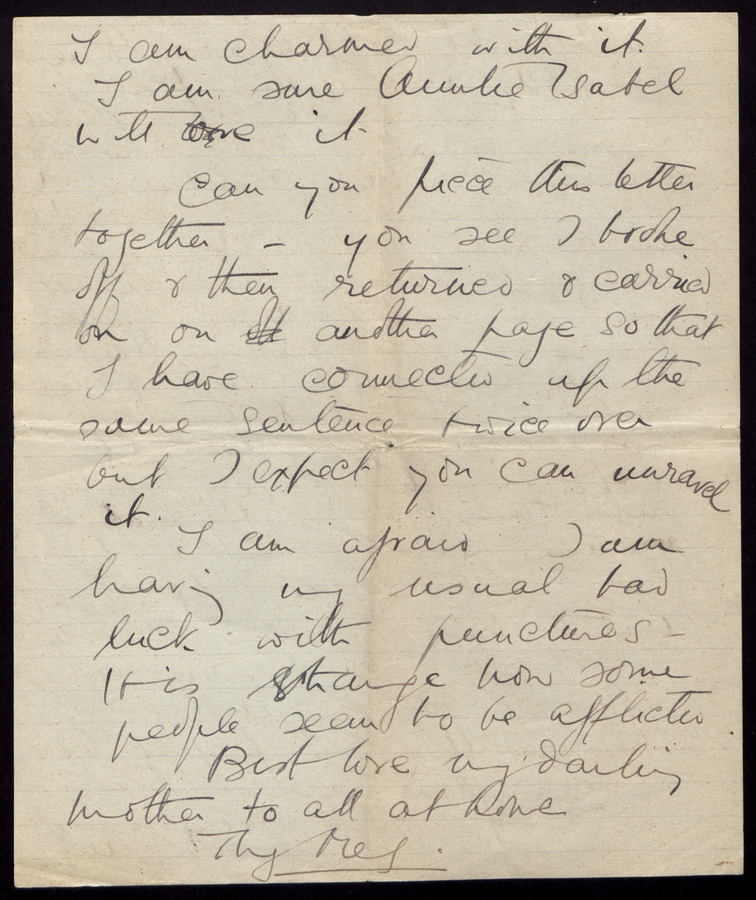 I am charmed with it.
I am sure Auntie Isabel
will love it
Can you piece this letter
together - you see I broke
off & then returned & carried
on on another page so that
I have connected up the
same sentence twice over
but I expect you can unravel
it.
I am afraid I am
having my usual bad
luck with punctures -
It is strange how some
people seem to be afflicted
Best love my darling
mother to all at home
Thy Meg.